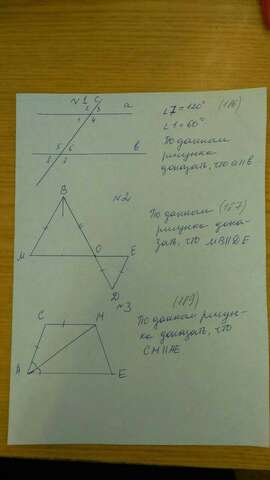 №1
c
2 3
a
1 4
5 6
b
∠7=120° (186)
∠1=60°.
По данном
рисунка
доказать, что a∥b
B
№2
M
O
E
D
По данном (187)
рисунка дока-
зать, что MB∥DE
№3
C
M
A
E
(189)
По данном рисун-
ка доказать, что
CM∥AE